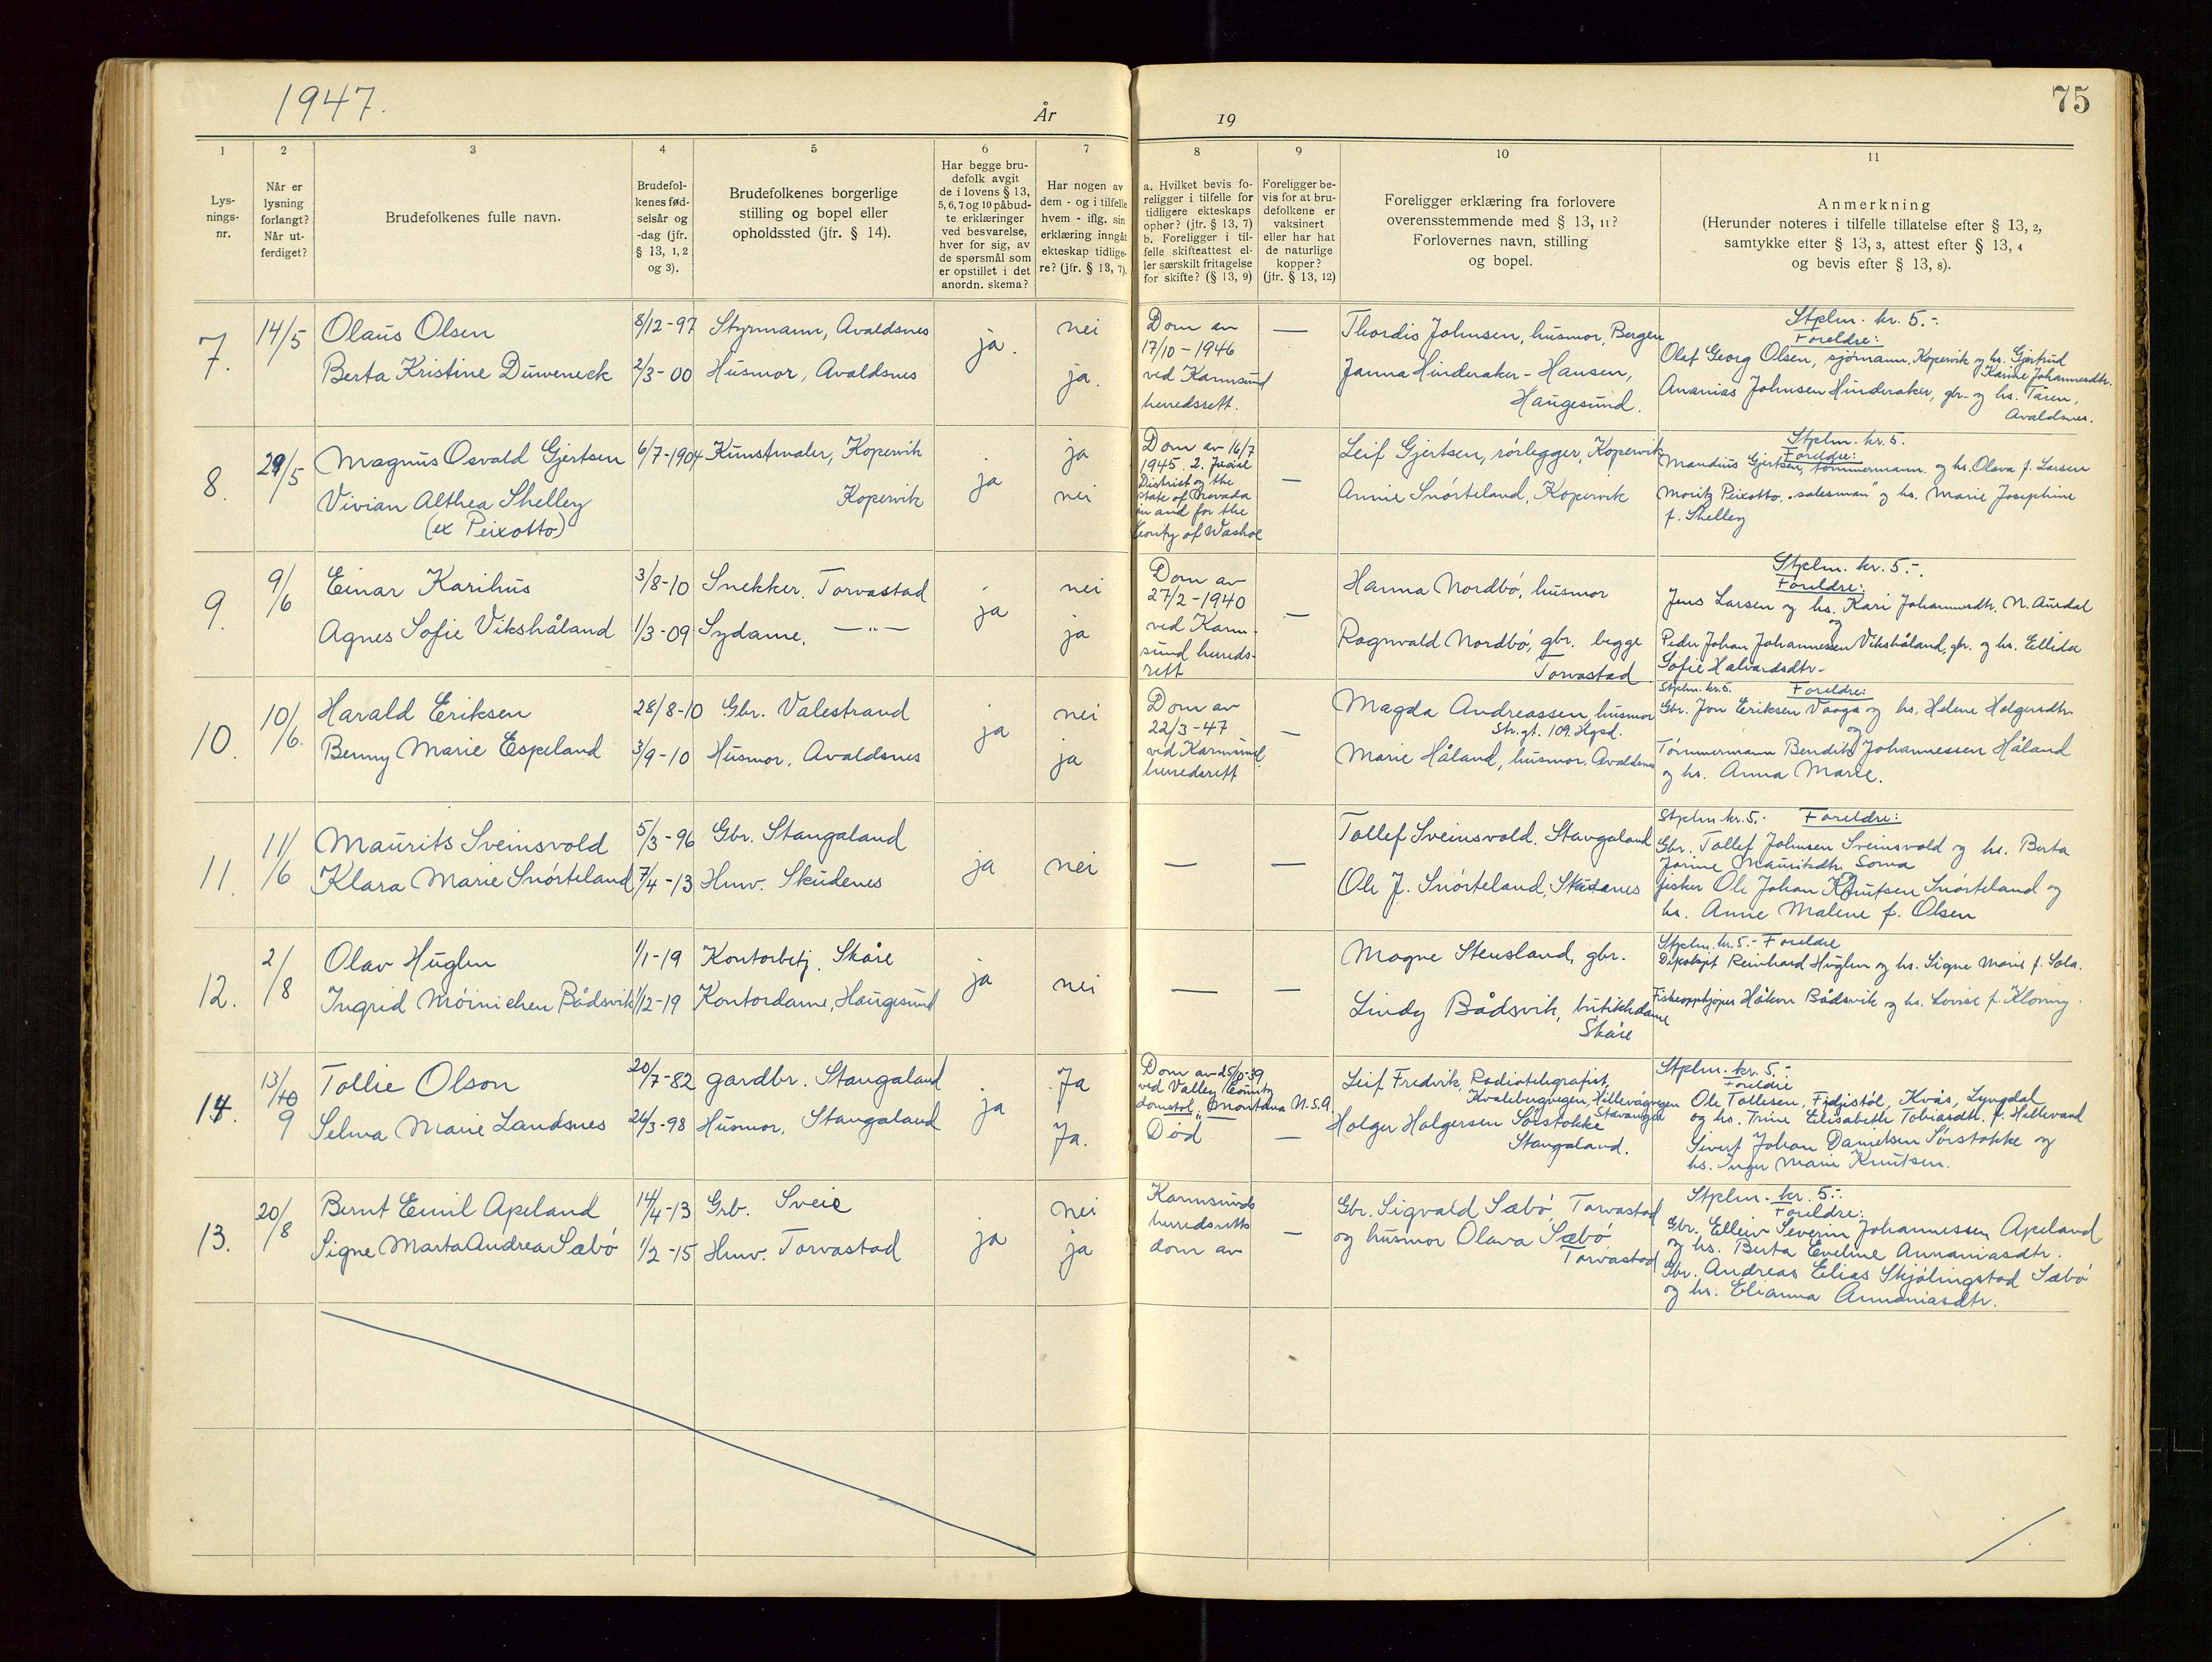 1947.
År
19
75
1
Lys-
nings-
nr.
2
Når er
lysning
forlangt?
Når ut-
ferdiget?
3
Brudefolkenes fulle navn.
4
Brudefol-
kenes fød-
selsår og
-dag (jfr.
§ 13, 1, 2
og 3).
5
Brudefolkenes borgerlige
stilling og bopel eller
opholdssted (jfr. § 14).
6
Har begge bru-
defolk avgit
de i lovens § 13,
5, 6, 7 og 10 påbud-
te erklæringer
ved besvarelse,
hver for sig, av
de spørsmål som
er opstillet i det
anordn. skema?
7
Har nogen av
dem - og i tilfelle
hvem - iflg. sin
erklæring inngåt
ekteskap tidlige-
re? (jfr. § 13, 7).
8
a. Hvilket bevis fo-
religger i tilfelle for
tidligere ekteskaps
ophør? (jfr. § 13, 7)
b. Foreligger i til-
felle skifteattest el-
ler særskilt fritagelse
for skifte? (§ 13, 9)
9
Foreligger be-
vis for at bru-
defolkene er
vaksinert
eller har hat
de naturlige
kopper?
(jfr. § 13, 12)
10
Foreligger erklæring fra forlovere
overensstemmende med § 13, 11?
Forlovernes navn, stilling
og bopel.
11
Anmerkning
(Herunder noteres i tilfelle tillatelse efter § 13, 2,
samtykke efter § 13, 3, attest efter § 13, 4
og bevis efter § 13, 8).
7.
14/5
Olaus Olsen
8/12-97
Styrmann, Avaldsnes
ja.
nei
Berta Kristine Duweneck
2/3-00
Husmor, Avaldsnes
ja.
Dom av
17/10-1946
ved Karmsund
herredsrett.
—
Thordis Johnsen, husmor, Bergen
Janna Hinderaker-Hansen,
Haugesund.
Stplm. kr. 5.-
Foreldre:
Olaf Georg Olsen, sjømann, Kopervik og hs. Gjertrud
Karine Johannesdtr.
Ananias Johnsen Hinderaker, gbr. og hs. Taren,
Avaldsnes.
8.
29/5
Magnus Osvald Gjertsen
6/7-1904
Kunstmaler, Kopervik
ja
ja
Vivian Althea Shelley
(ex Peixotto)
Kopervik
nei
Dom av 16/7
1945. 2.
District of the
state of Nevada
in and for the
County of Washoe
—
Leif Gjertsen, rørlegger, Kopervik
Annie Snørteland, Kopervik
Stplm. kr. 5.
Foreldre:
Mandius Gjertsen, tømmermann. og hs. Olava f. Larsen
Moritz Peixotto, "salesman" og hs. Marie Josephine
f. Shelley
9.
9/6
Einar Karihus
3/8-10
Snekker, Torvastad
ja
nei
Agnes Sofie Vikshåland
1/3-09
Sydame, —"—
ja
Dom av
27/2-1940
ved Karm-
sund herreds-
rett
—
Hanna Nordbø, husmor
Rognvald Nordbø, gbr. begge
Torvastad
Stplm. kr. 5.-
Foreldre:
Jens Larsen og hs. Kari Johannesdtr. N. Aurdal
og
Peder Johan Johannessen Vikshåland, gbr. og hs. Ellida
Sofie Halvardsdtr.
10.
10/6.
Harald Eriksen
28/8-10
Gbr. Valestrand
ja
nei
Benny Marie Espeland
3/9-10
Husmor, Avaldsnes
ja
Dom av
22/3-47
ved Karmsund
herredsrett
—
Magda Andreassen, husmor
Str.gt. 109. Hgsd.
Marie Håland, husmor, Avaldsnes
Stplm. kr. 5. Foreldre:
Gbr. Jon Eriksen Vaage og hs. Helene Holgersdtr.
og
Tømmermann Bendik Johannessen Håland
og hs. Anna Marie.
11.
11/6
Maurits Sveinsvold
5/3-96
Gbr. Stangaland
ja
nei
Klara Marie Snørteland
7/4-13
Husv. Skudenes
—
—
Tollef Sveinsvold, Stangaland
Ole J. Snørteland, Skudenes
Stplm kr. 5.- Foreldre:
Gbr. Tollef Johnsen Sveinsvold og hs. Berta
Jorine Mauritsdtr. Soma
fisker Ole Johan Knutsen Snørteland og
hs. Anne Malene f. Olsen
12.
2/8
Olav Huglen
1/1-19
Kontorbetj. Skåre
ja
nei
Ingrid Møinichen Bådsvik
1/12-19
Kontordame, Haugesund
—
—
Magne Stensland, gbr.
Lindy Bådsvik, butikkdame
Skåre
Stplm. kr. 5.- Foreldre
Reinhard Huglen og hs. Signe Marie f. Sola.
Fiskeoppkjøper Håkon Bådsvik og hs. Lovise f. Kloning.
14.
13/10
9
Tollie Olson
20/7-82
gardbr. Stangaland
ja
Ja
Selma Marie Landsnes
26/3-98
Husmor, Stangaland
Ja.
Dom av 25/10-39
ved Valley County
domstol, Montana U.S.A.
Død
—
Leif Fredvik, Radiotelegrafist,
Kvalebergvegen, Hillevågvegen
Stavanger
Holger Holgersen Sørstokke
Stangaland.
Stplm. kr. 5.-
Foreldre
Ole Tollesen, Fidjistøl, Kvås, Lyngdal
og hs. Trine Elisabeth Tobiasdtr. f. Hillevand
Sivert Johan Danielsen Sørstokke og
hs. Inger Marie Knutsen.
13.
20/8
Bernt Emil Apeland
14/4-13
Grb. Sveie
ja
nei
Signe Marta Andrea Sæbø
1/2-15
Husv. Torvastad
ja
Karmsunds
herredsretts
dom av
—
Gbr. Sigvald Sæbø Torvastad
og husmor Olava Sæbø
Torvastad
Stplm. kr. 5.-
Foreldre:
Gbr. Elleiv Severin Johannessen Apeland
og hs. Berta Eveline Annaniasdtr.
Gbr. Andreas Elias Skjølingstad Sæbø
og hs. Elianna Annaniasdtr.